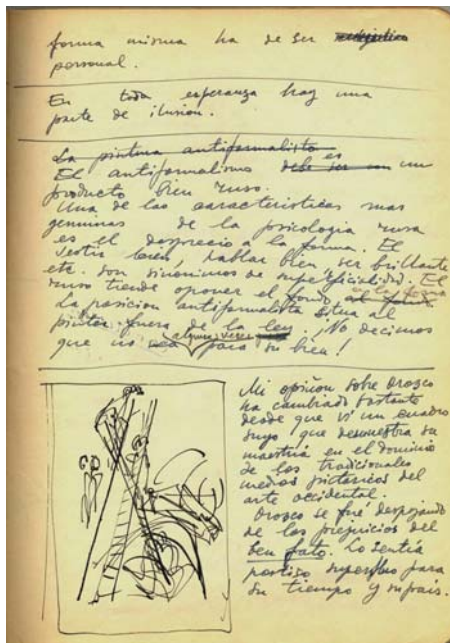 forma misma ha de ser
personal.
En toda esperanza hay una
parte de ilusion.
La pintura antiformalista
El antiformalismo es debe ser un
producto bien ruso.
Una de las caracteristicas mas
genuinas de la psicologia rusa
es el desprecio a la forma. El
vestir bien, hablar bien, ser brillante
etc. son sinonimos de superficialidad. El
ruso tiende oponer el fondo a la forma
La posicion antiformalista situa al
pintor fuera de la ley. ¡No decimos
que no sea algunas veces para su bien!
Mi opiñon sobre Orosco
ha cambiado bastante
desde que ví un cuadro
suyo que demuestra su
maestría en el dominio
de los tradicionales
medios pictóricos del
arte occidental.
Orosco se fué despojando
de los prejuicios del
ben fato. Lo sentía
postizo superfluo para
su tiempo y su país.